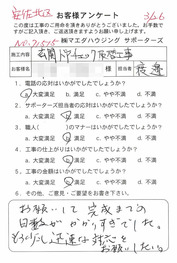 安佐北区
お客様アンケート
3/26
この度は工事のご用命を頂きありがとうございました。お手数で
すがご記入頂き、ご返送頂きますようお願い申し上げます。
㈱マエダハウジング サポーターズ
施工内容
玄関ドアチェック取替工事
お客様名
様
担当者
渡邊
1. 電話の対応はいかがでしたでしょうか?
a. 大変満足 b. 満足 c. やや不満 d. 不満
2. サポーターズ担当者の応対はいかがでしたでしょうか?
a. 大変満足 b. 満足 c. やや不満 d. 不満
3. 職人( )のマナーはいかがでしたでしょうか?
a. 大変満足 b. 満足 c. やや不満 d. 不満
4. 工事の仕上がりはいかがでしたでしょうか?
a. 大変満足 b. 満足 c. やや不満 d. 不満
5. 工事の金額はいかがでしたでしょうか?
a. 大変満足 b. 満足 c. やや不満 d. 不満
6. その他、ご意見・ご要望をお書き下さい。
お願いして完成までの
日数がかかりすぎでした。
もう少し迅速な対応を
お願いしたい。